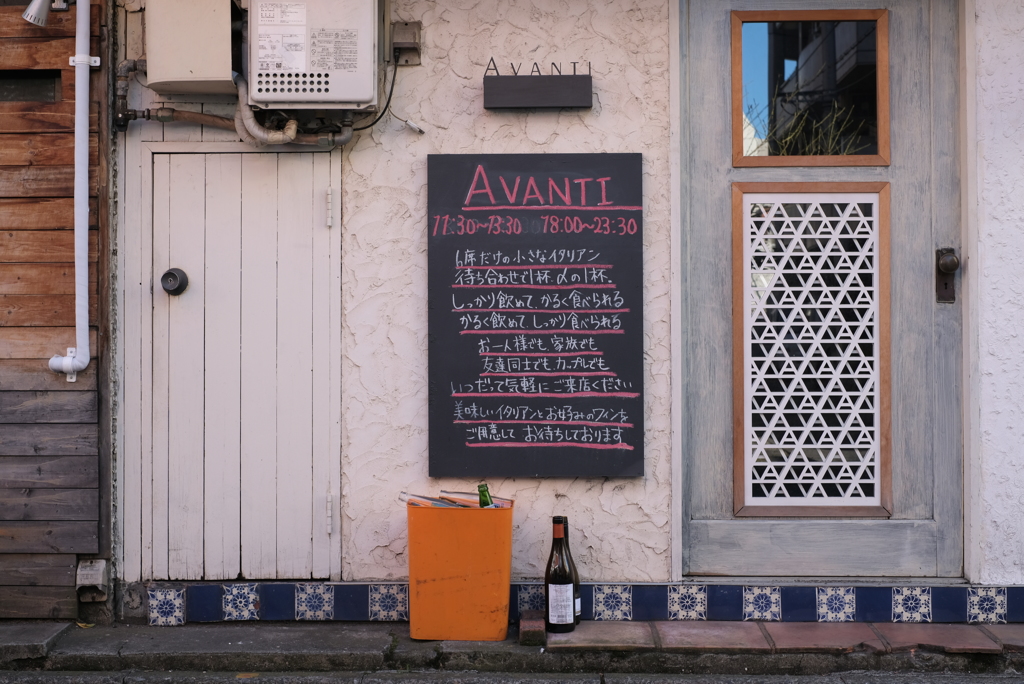 AVANTI
AVANTI
11:30~13:30 18:00~23:30
6席だけの小さなイタリアン
待ち合わせで1杯、〆の1杯、
しっかり飲めて、かるく食べられる
かるく飲めて、しっかり食べられる
お一人様でも、家族でも
友達同士でも、カップルでも
いつだって気軽にご来店ください
美味しいイタリアンとお好みのワインを
ご用意して お待ちしております